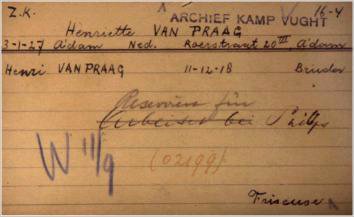 Z.K. A ARCHIEF KAMP VUGHT V 16-4
Henriette VAN PRAAG
3-1-27 A'dam Ned. Roerstraat 20 III, A'dam
Henri VAN PRAAG 11-12-18 Bruder
Reserviert für
Arbeiter bei Philips
W III/9 (02199)
Friseuse